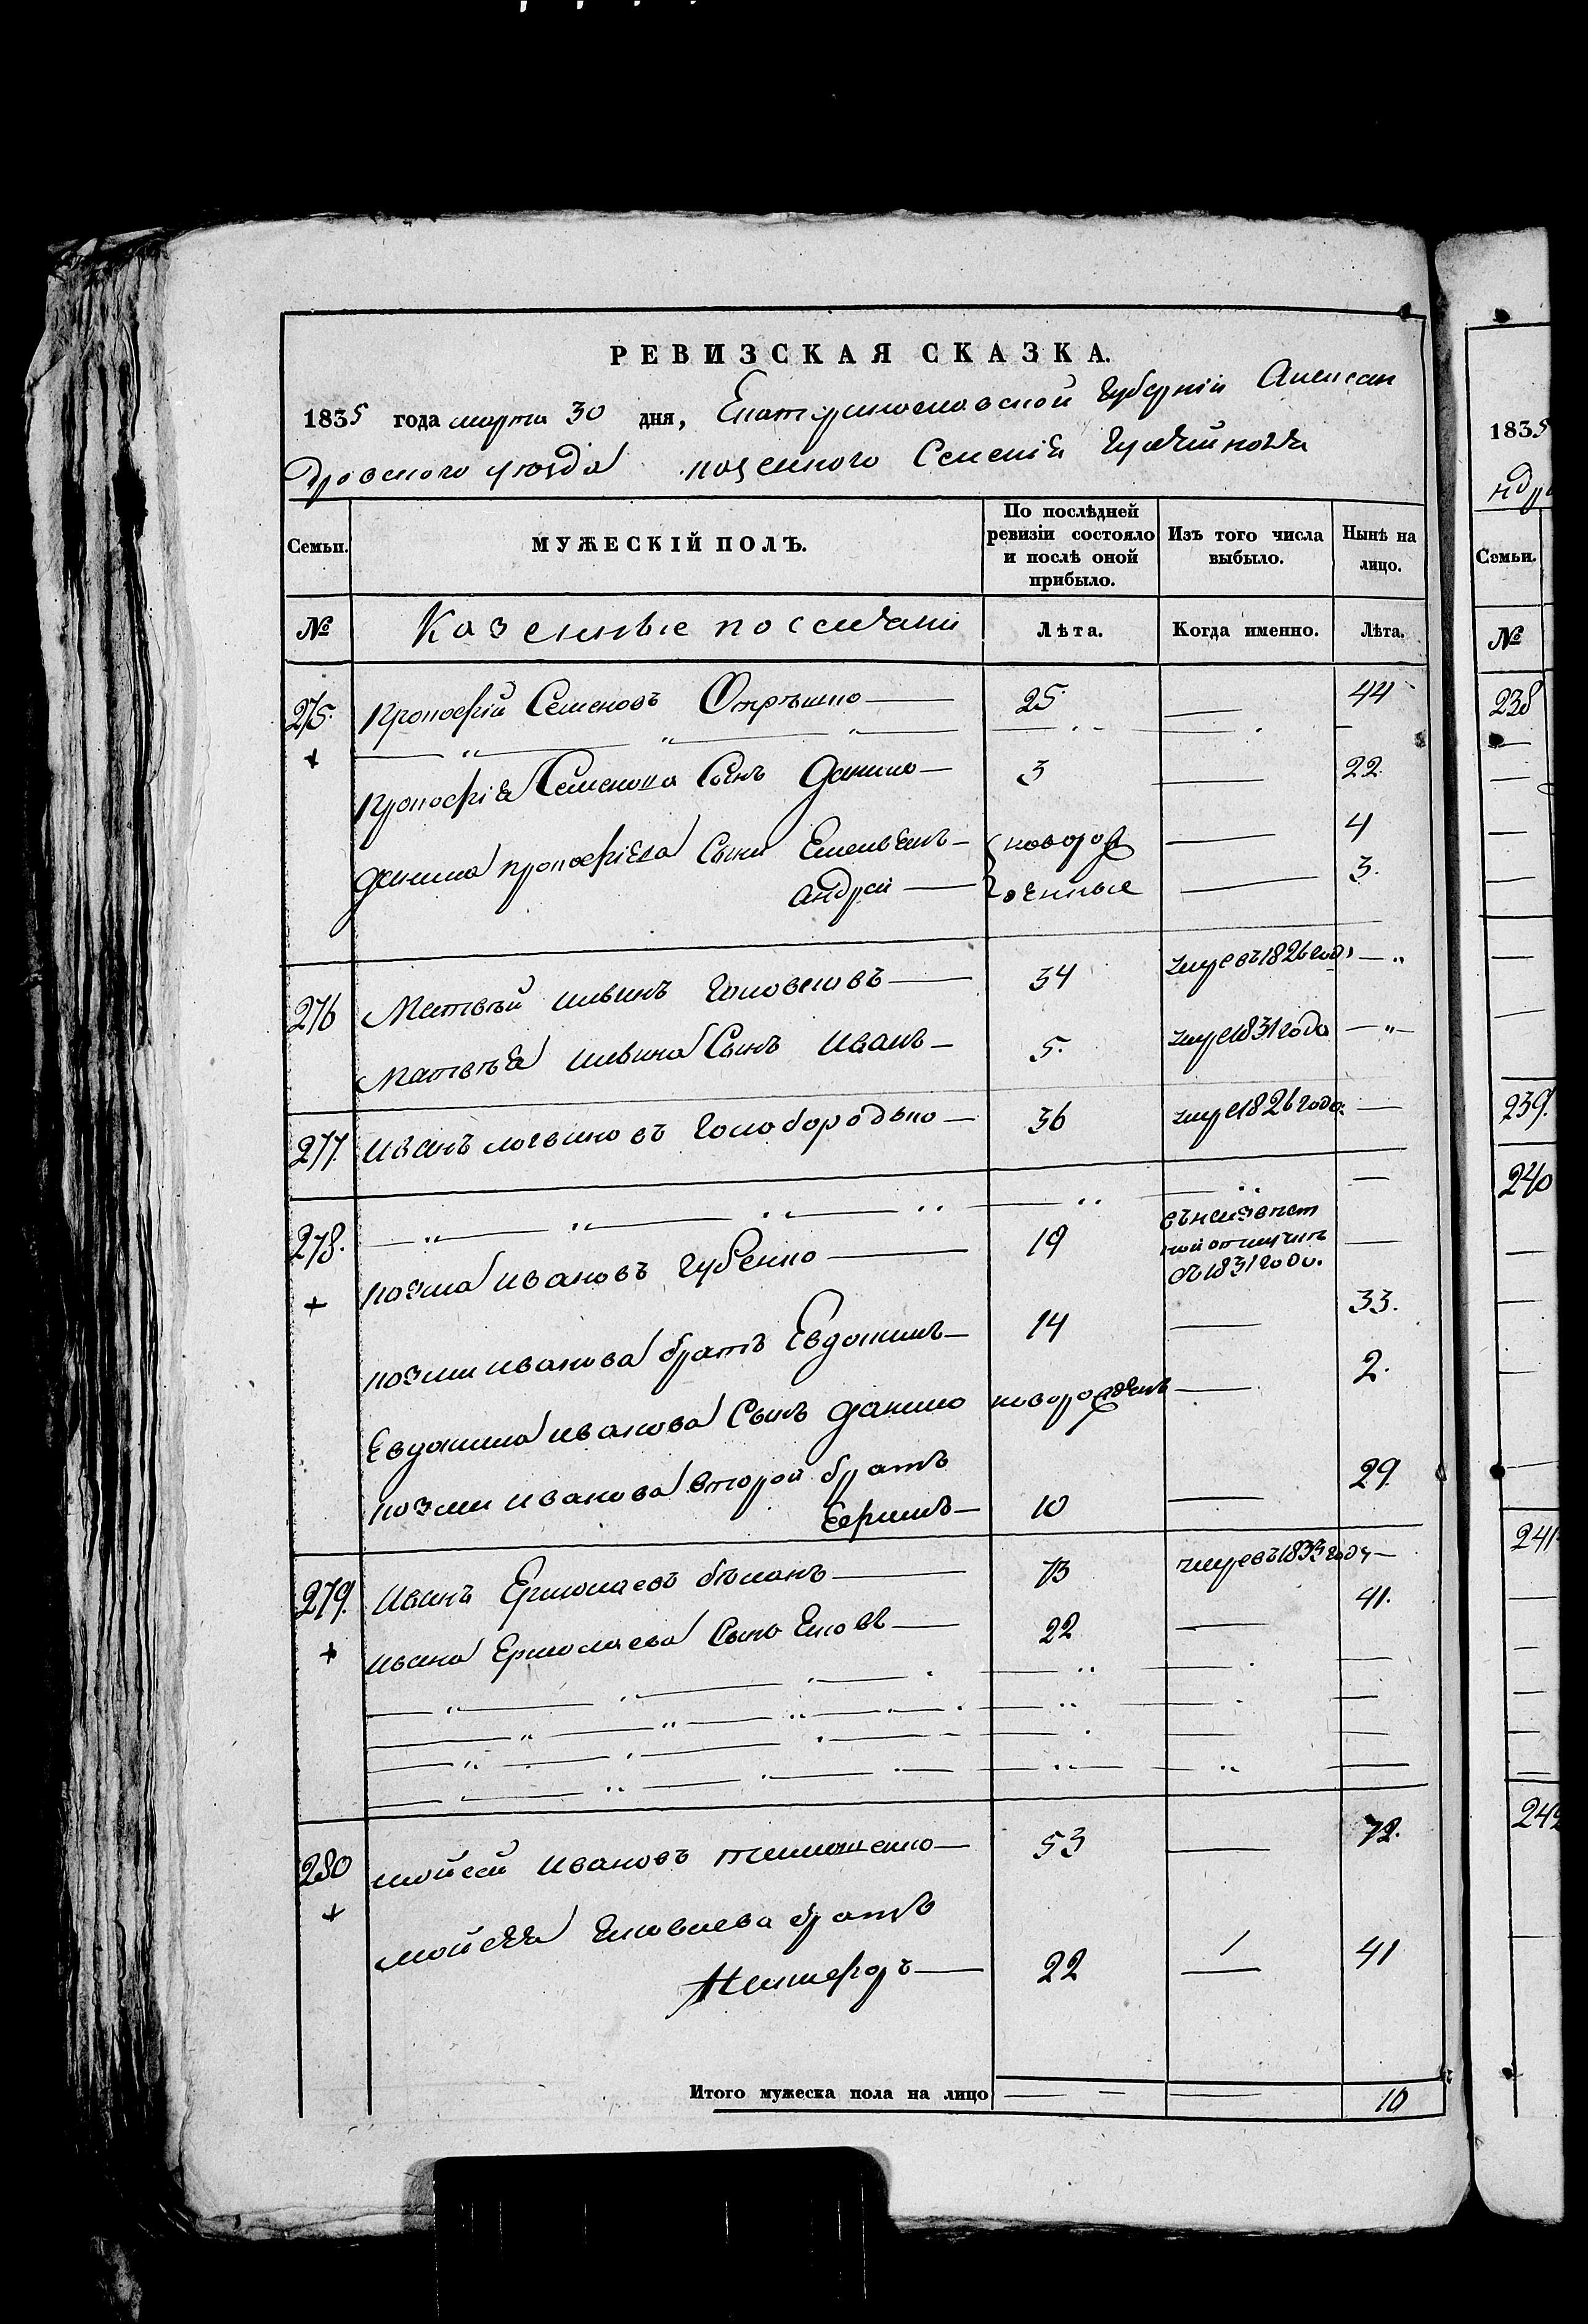 РЕВИЗСКАЯ СКАЗКА.
1835 года марта 30 дня, Екатеринославской Губерніи Алексан
дровского уѣзда казенного Селенія
Семьи.
МУЖЕСКІЙ ПОЛЪ.
По послѣдней ревизіи состояло и послѣ оной прибыло.
Изъ того числа выбыло.
Нынѣ на лицо.
№
Казенные поселяне
Лѣта.
Когда именно.
Лѣта.
275. Прокофій Семеновъ 25 — 44
+
Прокофія Семенова Сынъ Данило — 3 — 22.
Данила Прокофіева Сыны Емельянъ — новорож — 4
Андрей — денные — 3.
276 Матвѣй Ильинъ Головковъ — 34 умре въ 1826 году —
Матвѣя Ильина Сынъ Иванъ — 5. умре 1831 года —
277. Иванъ логвиновъ Голобородько — 36 умре 1826 года —
278. 
козма Ивановъ Губенко — 19 въ неизвест
ной отлучке
съ 1831 года. —
+
козми Иванова братъ Евдокимъ — 14 — 33.
Евдокима Иванова Сынъ Данило новорожденъ — 2.
козми Иванова второй братъ
Ефимъ — 10 — 29.
279. Иванъ Ермолаевъ бѣланъ — 73 умре въ 1833 году —
+
Ивана Ермолаева Сынъ Яковъ — 22 — 41.
280 мойсей Ивановъ тимошенко — 53 — 72.
+
мойсея братъ
Никифоръ — 22 — 41
Итого мужеска пола на лицо — — 10
1835
ндро
Семьи.
№
238
239.
240
241.
242